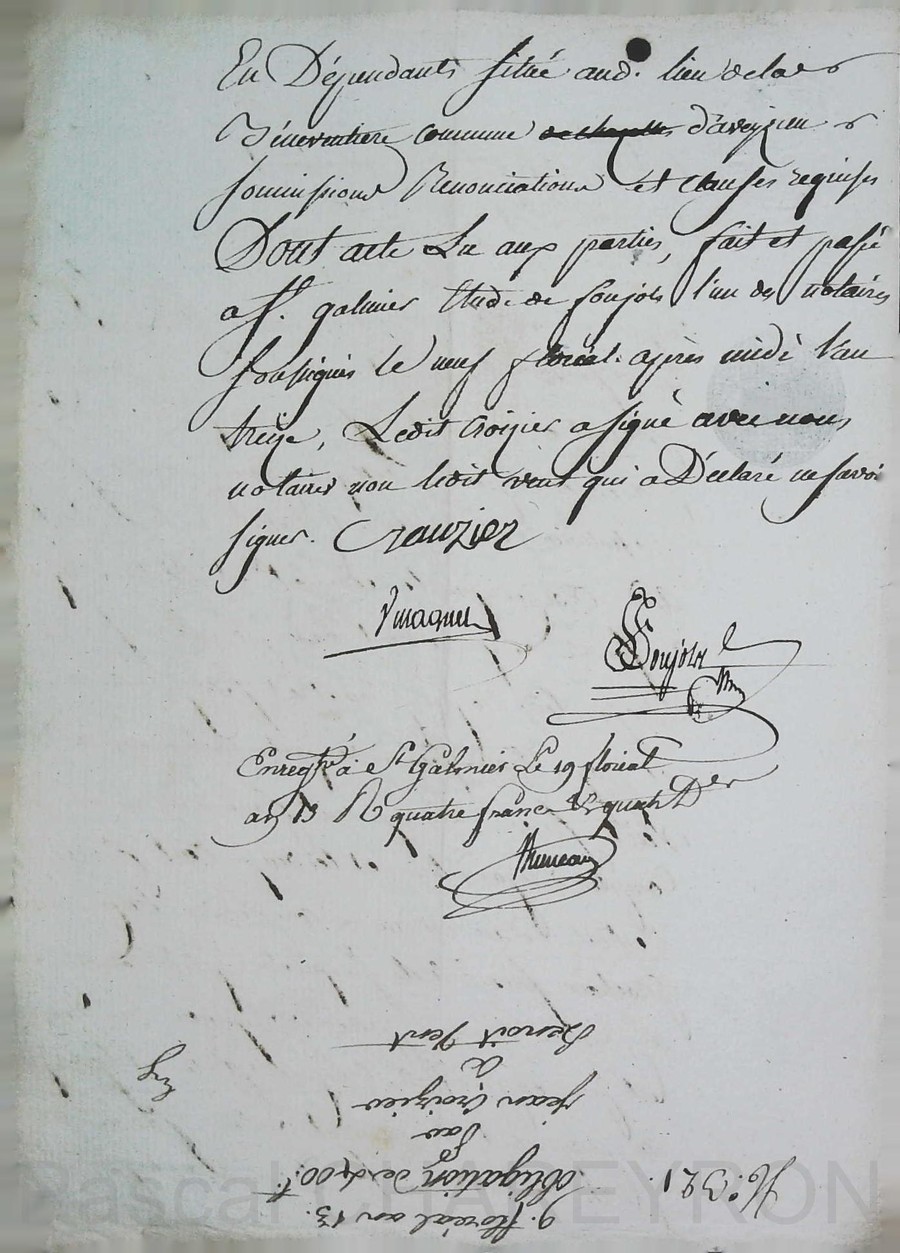 En Dépendants située aud. lieu de la
commune d'aveyzieu
soumissions Renonciations et clauses requises
Dont acte Lu aux parties, fait et passé
a St. galmier Etude de Soujols l'un des notaires
soussignés le neuf floréal après midi l'an
treize, Ledit croizier a signé avec nous
notaires non ledit vent qui a Déclaré ne savoi
signer. Crauzier
Soujols
Enregtré à St Galmier Le 19 floréal
an 13 R quatre francs & quatr Der
9. floréal an 13.
N.o 321. obligation de 400 f.
Par
jean Croizier
a
Benoit Vent
Pascal CHAPEYRON